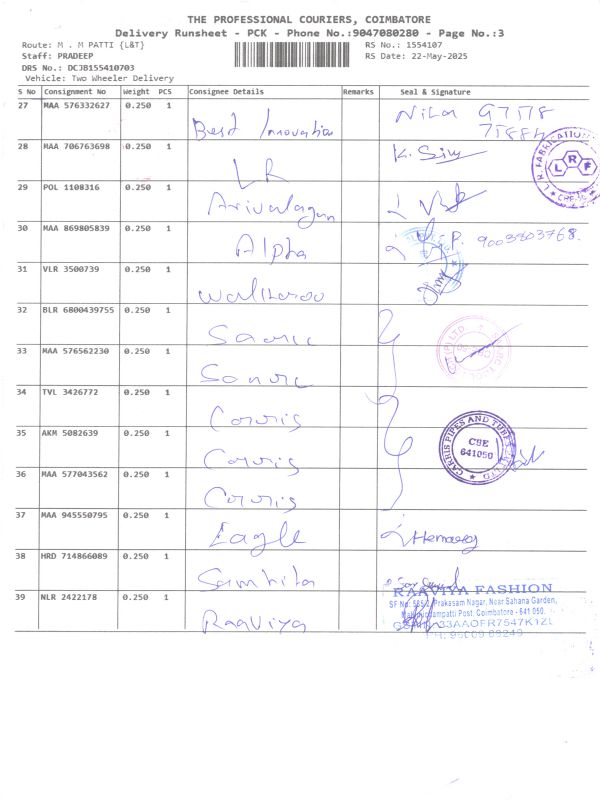 THE PROFESSIONAL COURIERS, COIMBATORE
Delivery Runsheet - PCK - Phone No.:9047080280 - Page No.:3
Route: M . M PATTI {L&T} RS No.: 1554107
Staff: PRADEEP RS Date: 22-May-2025
DRS No.: DCJB155410703
Vehicle: Two Wheeler Delivery
S No Consignment No Weight PCS Consignee Details Remarks Seal & Signature
27 MAA 576332627 0.250 1 Best Innovation
28 MAA 706763698 0.250 1 LR K. Siv
L.R. FABRICATION
LRF
29 POL 1108316 0.250 1 Arivalagan
30 MAA 869805839 0.250 1 Alpha P. 9003303768.
31 VLR 3500739 0.250 1
32 BLR 6800439755 0.250 1
33 MAA 576562230 0.250 1
34 TVL 3426772 0.250 1 Corris
35 AKM 5082639 0.250 1 Corris
CARRIS PIPES AND TUBES
CBE
641050
36 MAA 577043562 0.250 1 Corris
37 MAA 945550795 0.250 1 Eagle
38 HRD 714866089 0.250 1 Samhita
39 NLR 2422178 0.250 1 Raaviya
RAAVIYA FASHION
Prakasam Nagar, Near Sahana Garden,
Post, Coimbatore - 641 050.
33AAOFR7547K1ZL